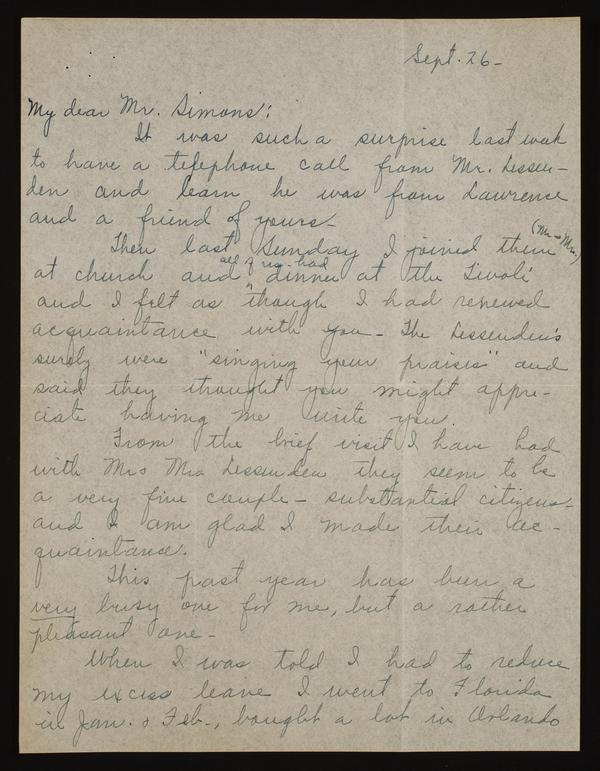 Sept. 26-
My dear Mr. Simons:
It was such a surprise last week
to have a telephone call from Mr. Lessen-
den and learn he was from Lawrence
and a friend of yours-
Then last Sunday I joined them (Mr & Mrs.)
at church and all of us had dinner at the Tivoli
and I felt as though I had renewed
acquaintance with you- The Lessenden's
surely were "singing your praises" and
said they thought you might appre-
ciate having me write you.
From the brief visit I have had
with Mr & Mrs Lessenden they seem to be
a very fine couple- substantial citizens-
and I am glad I made their ac-
quaintance.
This past year has been a
very busy one for me, but a rather
pleasant one-
When I was told I had to reduce
my excess leave I went to Florida
in Jan. & Feb., bought a lot in Orlando